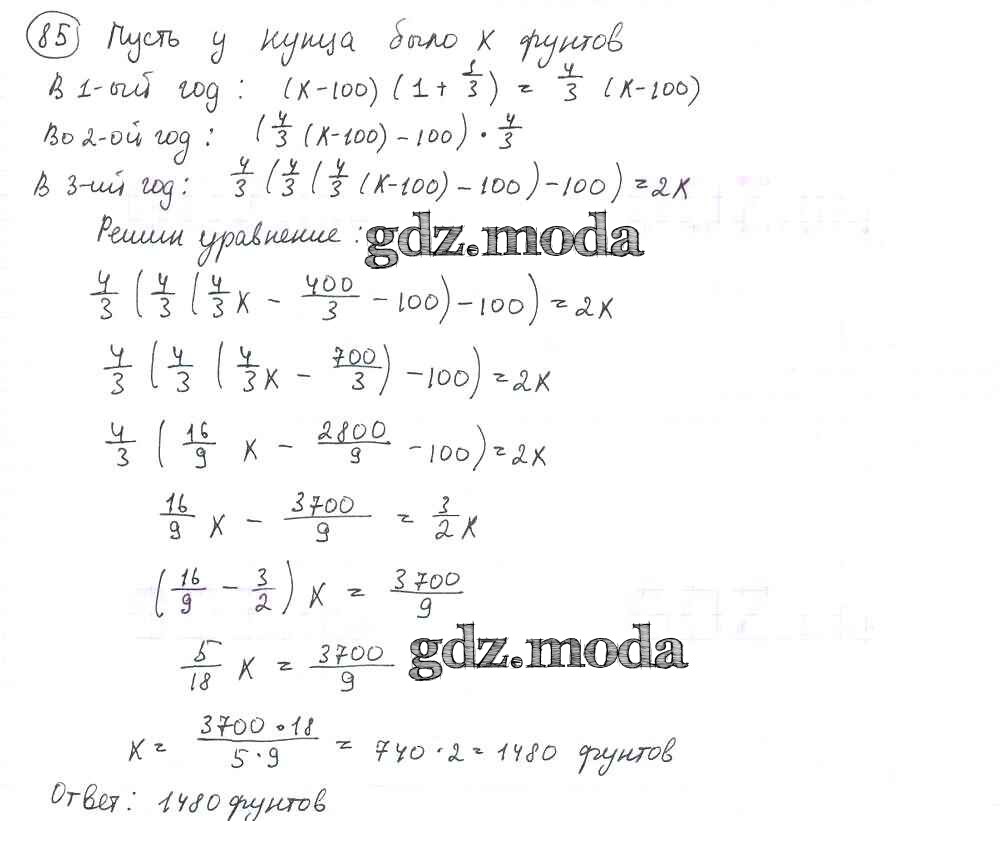 85 Пусть у купца было x фунтов
В 1-ый год: (x-100)(1+1/3) = 4/3 (x-100)
Во 2-ой год: (4/3 (x-100) - 100) • 4/3
В 3-ий год: 4/3 (4/3 (4/3 (x-100) - 100) - 100) = 2x
Решим уравнение: gdz.moda
4/3 (4/3 (4/3 x - 400/3 - 100) - 100) = 2x
4/3 (4/3 (4/3 x - 700/3) - 100) = 2x
4/3 (16/9 x - 2800/9 - 100) = 2x
16/9 x - 3700/9 = 3/2 x
(16/9 - 3/2) x = 3700/9
5/18 x = 3700/9 gdz.moda
x = 3700•18/5•9 = 740•2 = 1480 фунтов
Ответ: 1480 фунтов